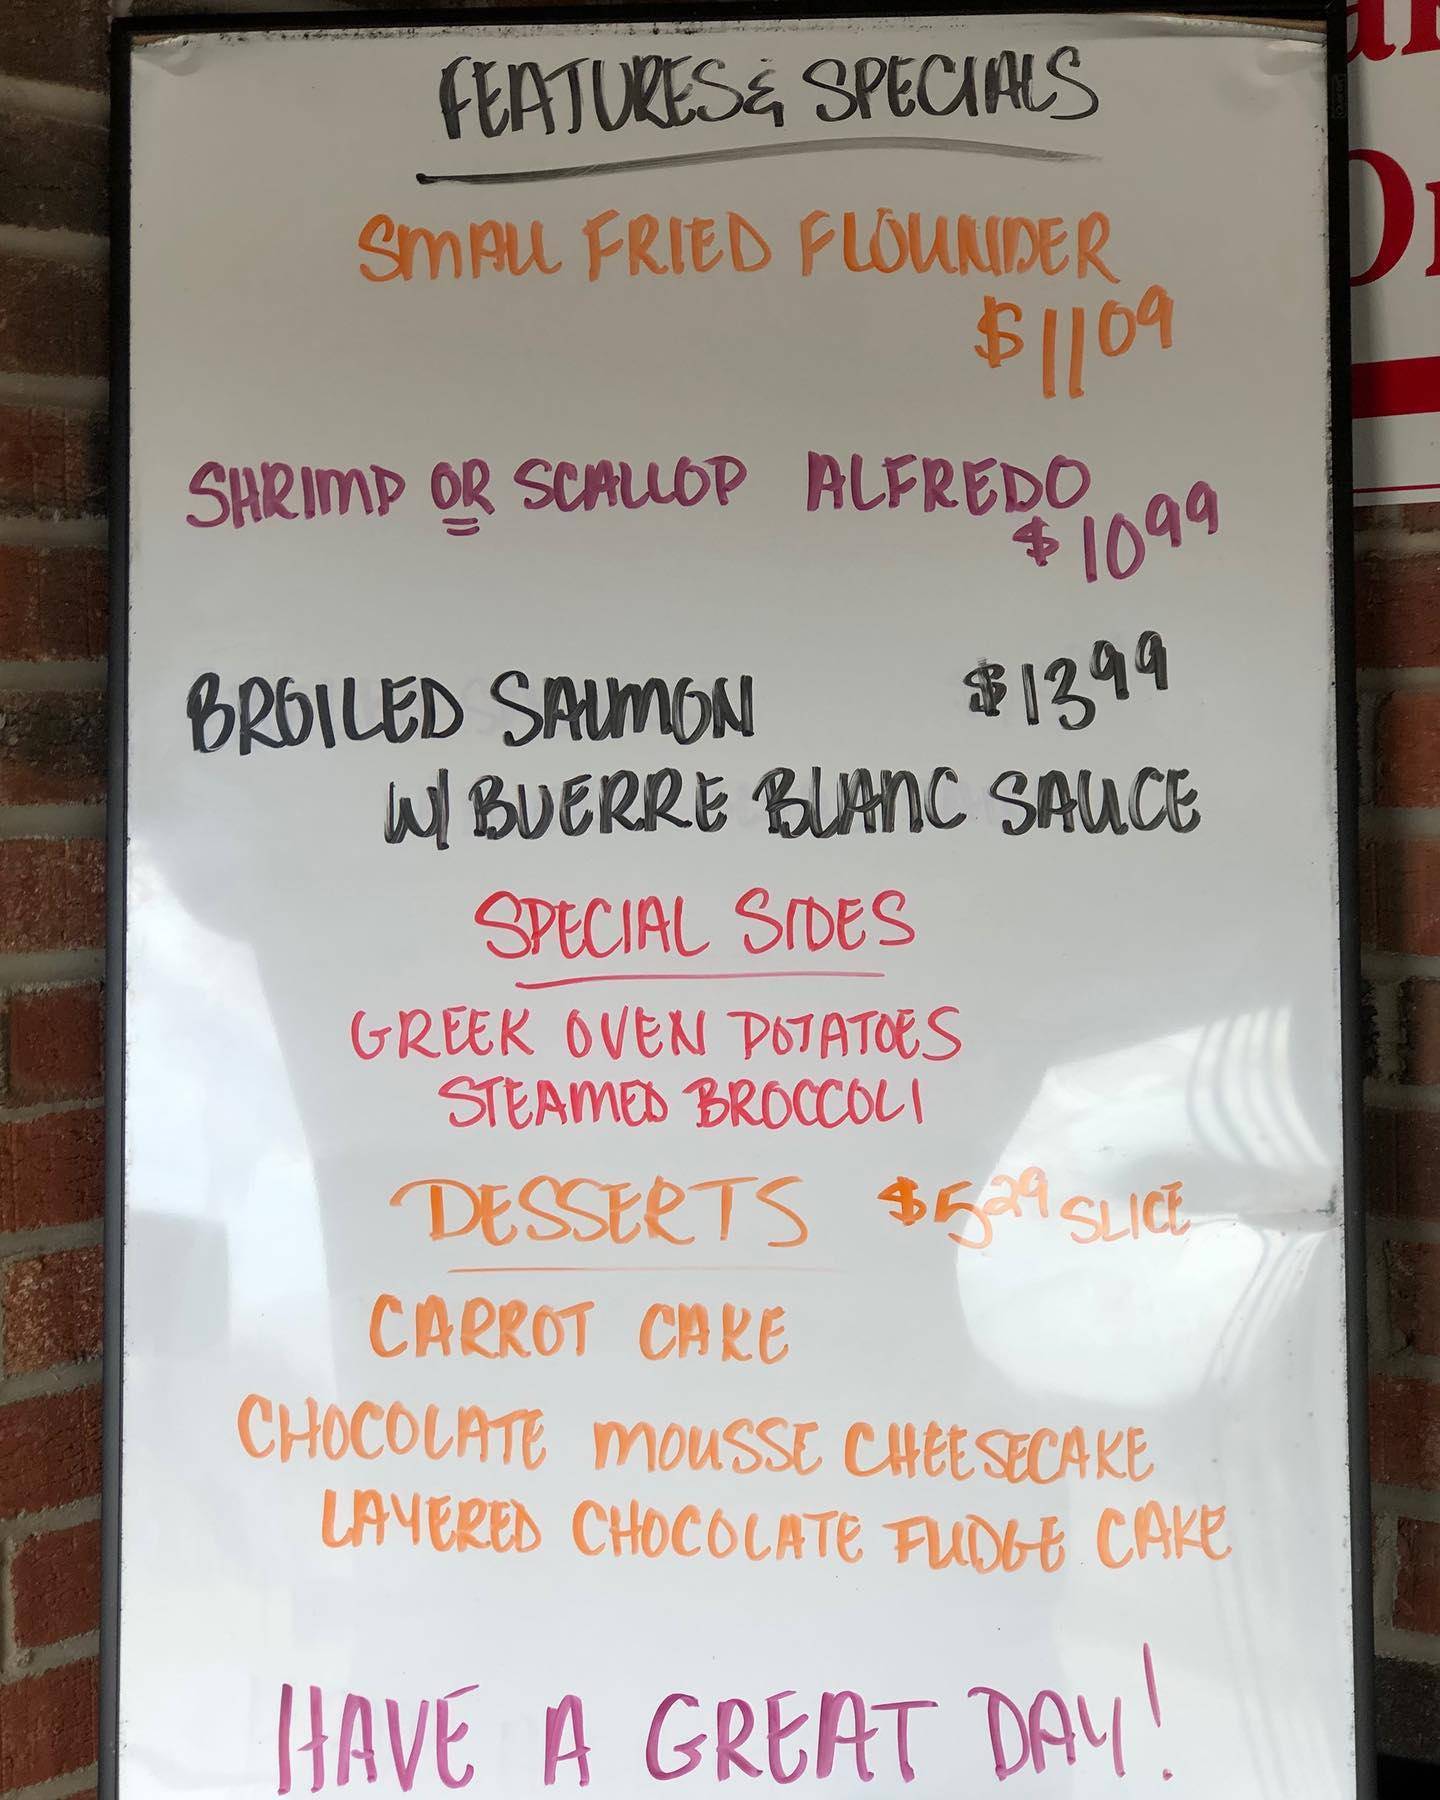 FEATURES & SPECIALS
SMALL FRIED FLOUNDER
$11 09
SHRIMP OR SCALLOP ALFREDO
$10 99
BROILED SALMON $13 99
W/ BUERRE BLANC SAUCE
SPECIAL SIDES
GREEK OVEN POTATOES
STEAMED BROCCOLI
DESSERTS $5 29 SLICE
CARROT CAKE
CHOCOLATE MOUSSE CHEESECAKE
LAYERED CHOCOLATE FUDGE CAKE
HAVE A GREAT DAY!